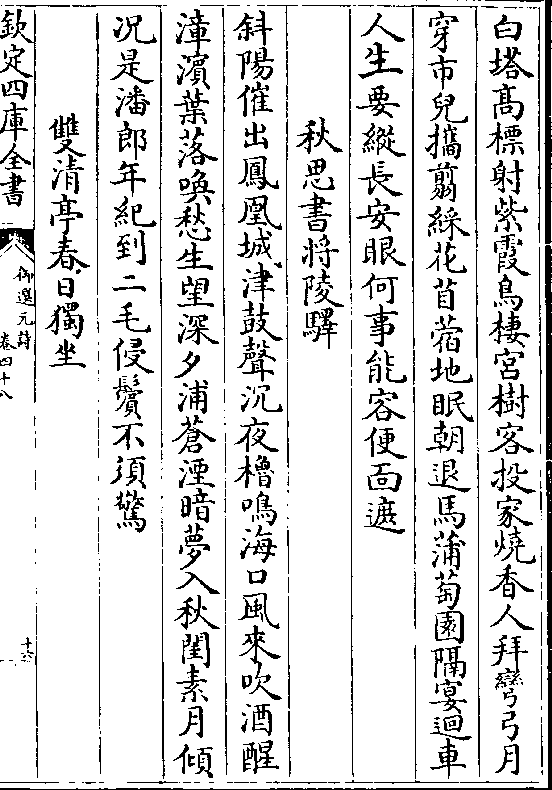 白塔高標射紫霞鳥棲宮樹客投家燒香人拜彎弓月
穿市兒擕翦綵花苜蓿地眠朝退馬蒲萄園隔宴迴車
人生要縱長安眼何事能容便面遮
秋思書将陵驛
斜陽催出鳳凰城津鼓聲沉夜櫓鳴海口風來吹酒醒
漳濱葉落喚愁生望深夕浦蒼湮暗夢入秋閨素月傾
况是潘郎年紀到二毛侵鬢不須驚
雙清亭春日獨坐
欽定四庫全書
御選元詩
卷四十八
十六